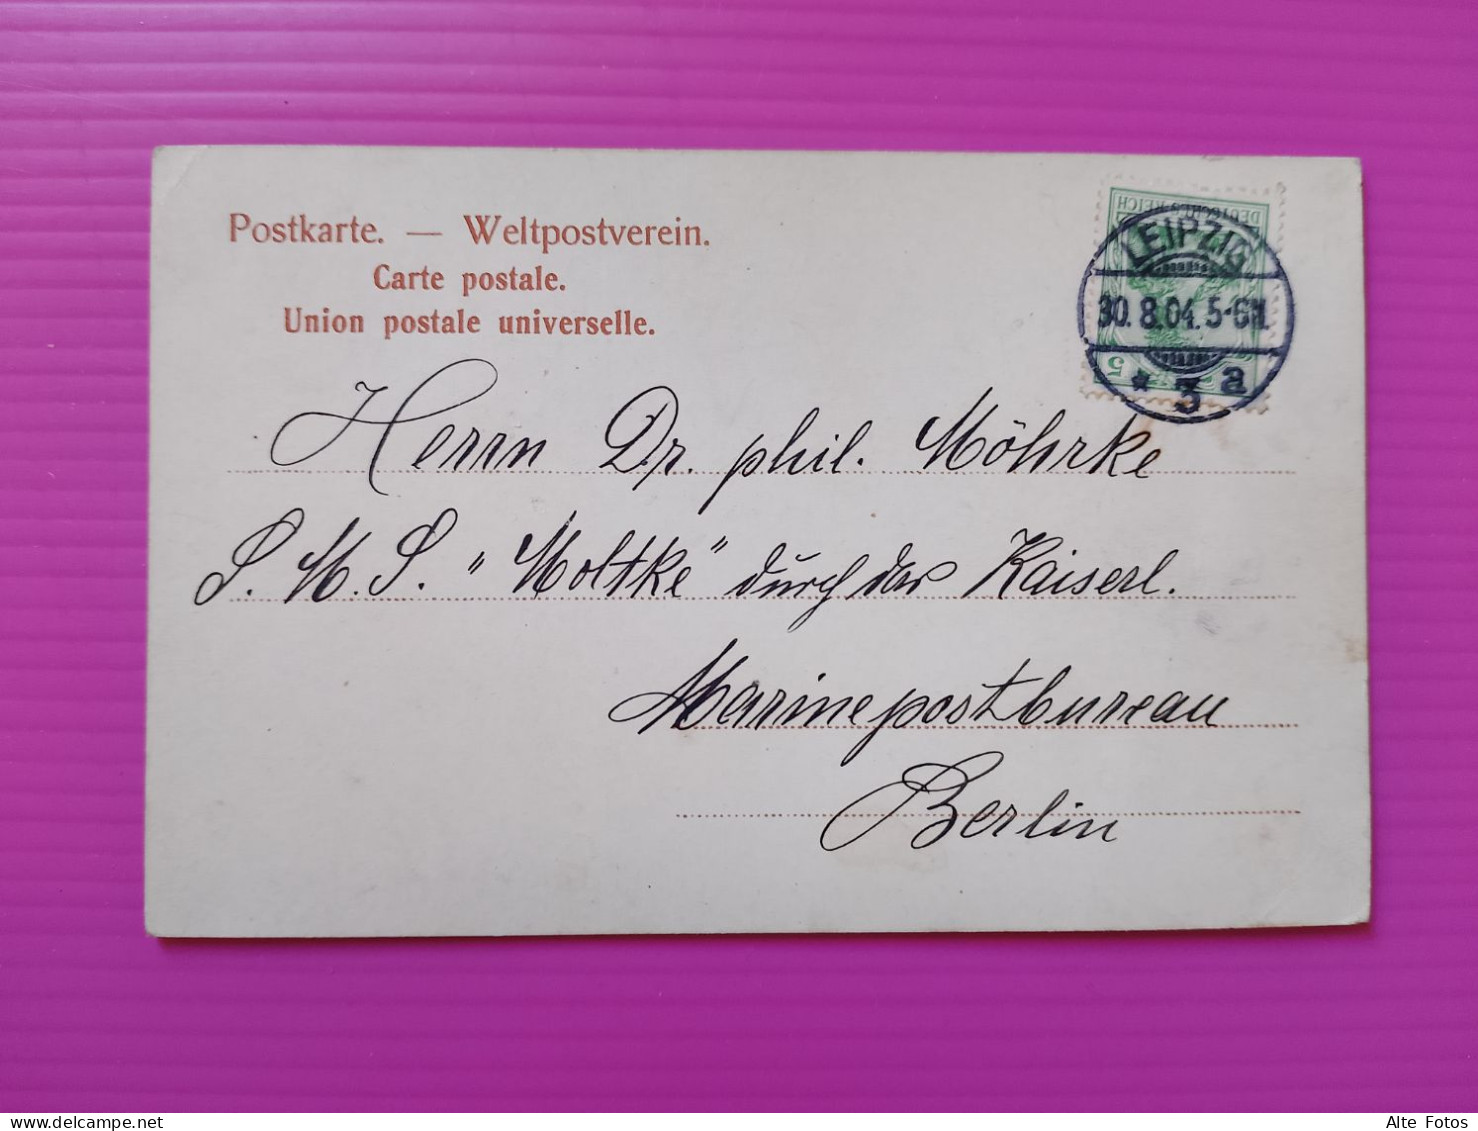 Postkarte. — Weltpostverein.
Carte postale.
Union postale universelle.
DEUTSCHES REICH
5
LEIPZIG
30. 8. 04. 5-6 N.
* 3 a
Herrn Dr. phil. Möhrke
S. M. S. „Moltke" durch das Kaiserl.
Marinepostbureau
Berlin
Alte Fotos